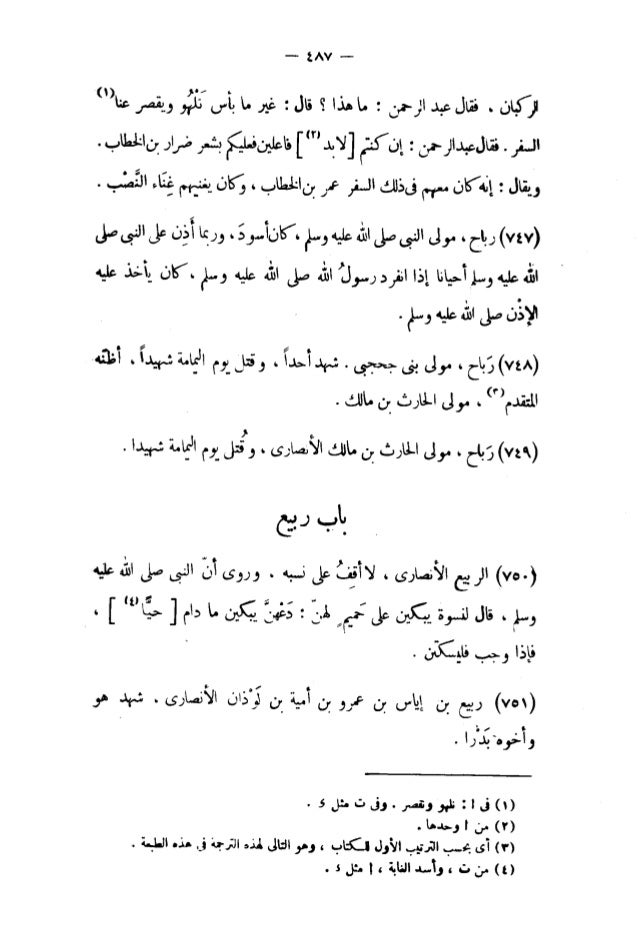 — ٤٨٧ —
الركبان ، فقال عبد الرحمن : ما هذا ؟ قال : غير ما بأس نَلْهُو ويقصر عنا (١)
السفر . فقال عبدالرحمن : إن كنتم [ لابد (٢) ] فاعلين فعليكم بشعر ضرار بن الخطاب .
ويقال : إنه كان معهم فى ذلك السفر عمر بن الخطاب ، وكان يغنيهم غِنَاء النَّصْب .
(٧٤٧) رباح ، مولى النبى صلى الله عليه وسلم ، كان أسودَ ، وربما أَذِن على النبى صلى
الله عليه وسلم أحيانا إذا انفرد رسولُ الله صلى الله عليه وسلم ، كان يأخذ عليه
الإِذْن صلى الله عليه وسلم .
(٧٤٨) رَباح ، مولى بنى جحجبى . شهد أحداً ، وقتل يوم اليمامة شهيداً ، أظنّه
المتقدم (٣) ، مولى الحارث بن مالك .
(٧٤٩) رَباح ، مولى الحارث بن مالك الأنصارى ، وقُتل يوم اليمامة شهيدا .
باب ربيع
(٧٥٠) الربيع الأنصارى ، لا أقِفُ على نسبه . وروى أنّ النبى صلى الله عليه
وسلم ، قال لنسوة يبكين على حَميمٍ لهنّ : دَعْهنَّ يبكين ما دام [ حيًّا (٤) ] ،
فإذا وجب فليسكتن .
(٧٥١) ربيع بن إياس بن عمرو بن أمية بن لَوْذان الأنصارى . شهد هو
وأخوه بَدْرا .
(١) فى ا : نلهو ونقصر . وفى ت مثل ء .
(٢) من ا وحدها .
(٣) أى بحسب الترتيب الأول للكتاب ، وهو التالى لهذه الترجمة فى هذه الطبعة .
(٤) من ت ، وأسد الغابة ، ا مثل ء .